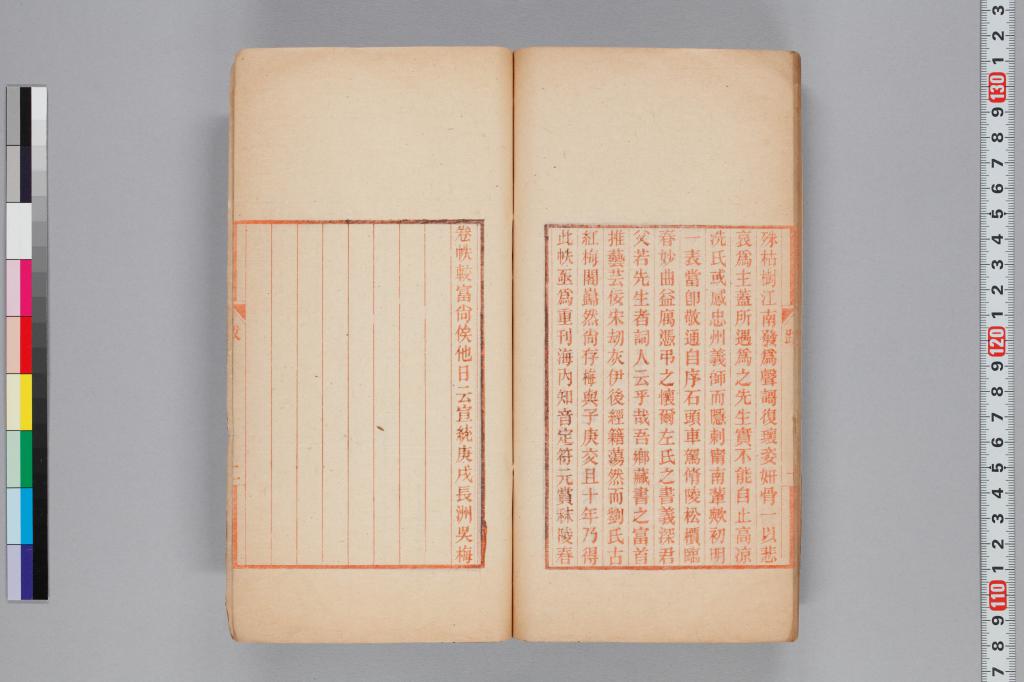 殊枯樹江南發爲聲謌復瓌姿妍骨一以悲
哀爲主蓋所遇爲之先生實不能自止高凉
洗氏或感忠州義師而隱刺甯南葦歟初明
一表當卽敬通自序石頭車駕脩陵松檟臨
春妙曲益厲憑弔之懷爾左氏之書義深君
父若先生者詞人云乎哉吾鄉藏書之富首
推藝芸俊宋刧灰伊後經籍蕩然而劉氏古
紅梅閣巋然尙存梅與子庚交且十年乃得
此帙亟爲重刊海內知音定符元賞秣陵春
卷帙較富尙俟他日云宣統庚戌長洲吳梅
跋
二